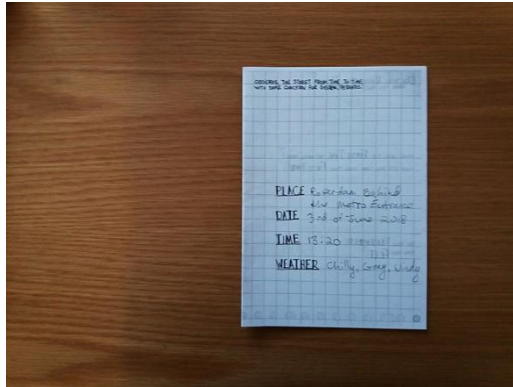 OBSERVE THE STREET FROM TIME TO TIME
WITH SOME CONCERN FOR SYSTEM, PERHAPS.
PLACE Rotterdam Behind
the Metro Entrance
DATE 3rd of June 2018
TIME 13:20
WEATHER Chilly, Grey, Windy